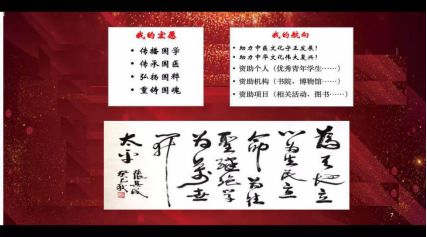 我的宏愿
• 传播国学
• 传承国医
• 弘扬国粹
• 重铸国魂
我的航向
• 助力中医文化守正发展！
• 助力中华文化伟大复兴！
• 资助个人（优秀青年学生……）
• 资助机构（书院、博物馆……）
• 资助项目（相关活动、图书……）
為天地立
心為生民立
命為往
聖繼絕學
為萬世
開
太平
7